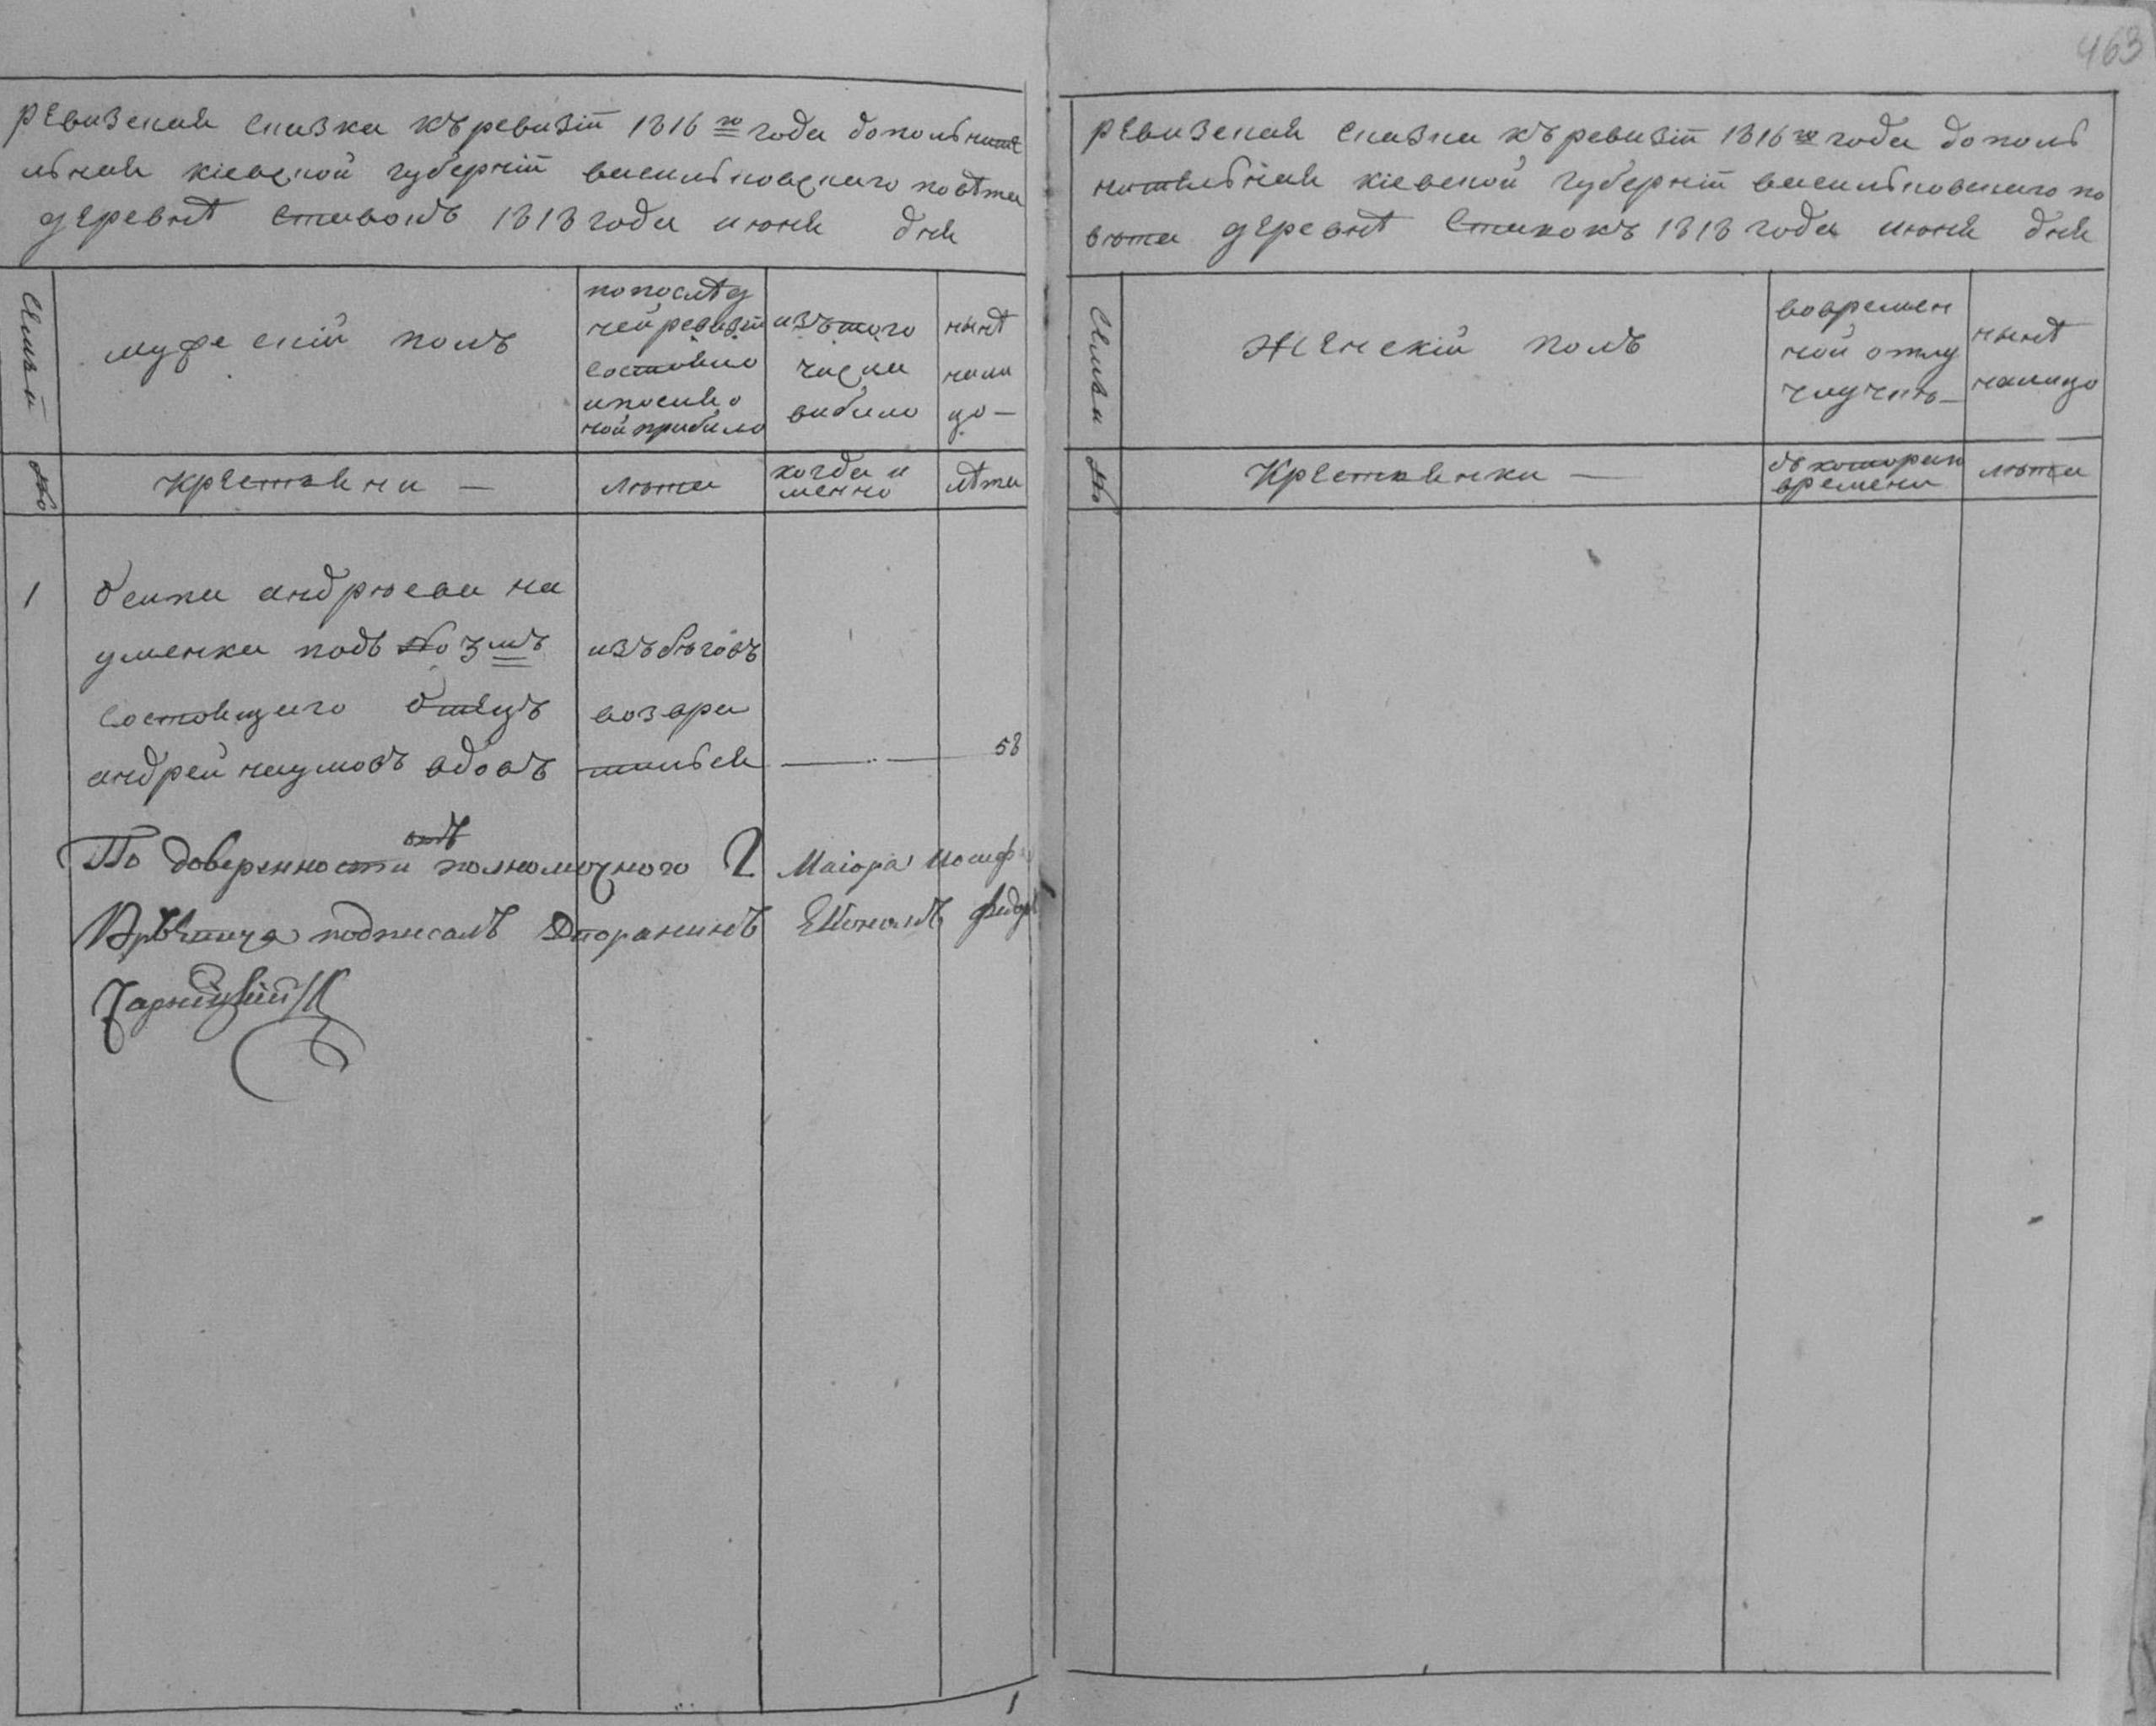 463
ревизская сказка къ ревизіи 1816го года дополните
льная кіевской губерніи васильковского повѣта
деревнѣ 1818 года июня дня
Семьи
мужескій полъ
по послѣд
ней ревизіи
состояло
и после о
ной прибило
изъ того
числа
вибило
нынѣ
нали
цо —
№
крестьяни —
лѣта
когда и
менно
лѣта
1
осипа андрюева на
уменка подъ № 3мъ
состоящаго отецъ
андрей наумовъ вдовъ
изъ бѣговъ
возвра
тился
58
По доверенности отъ полномочного Г Маіора Иосифа
подписалъ Економъ
ревизская сказка къ ревизіи 1816го года дополь
нительная кіевской губерніи васильковского по
вѣта деревнѣ 1818 года июня дня
Семьи
женскій полъ
во времен
ной отлу
чнынѣ
налицо
№
Крестьянки —
съ которого
времени
лѣта
1